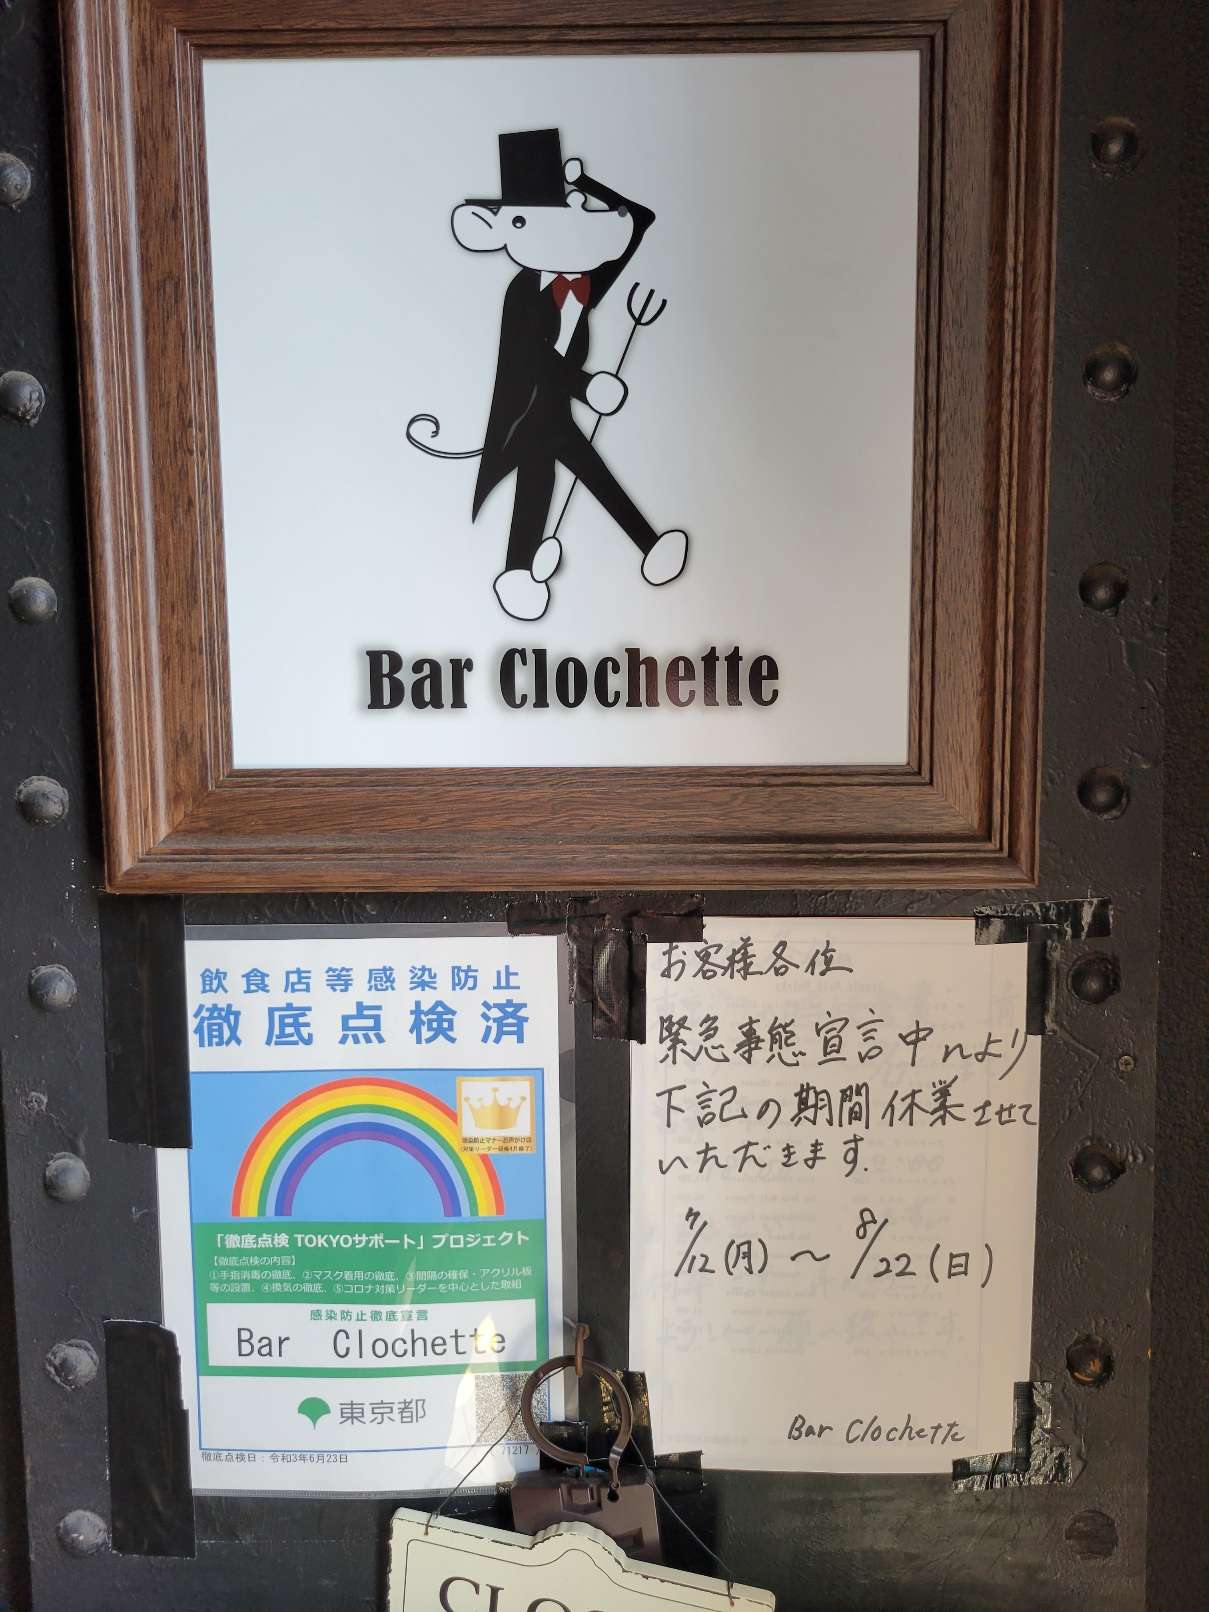 Bar Clochette
飲食店等感染防止
徹底点検済
「徹底点検 TOKYOサポート」プロジェクト
【徹底点検の内容】
①手指消毒の徹底、②マスク着用の徹底、③間隔の確保・アクリル板
等の設置、④換気の徹底、⑤コロナ対策リーダーを中心とした取組
感染防止徹底宣言
Bar Clochette
東京都
徹底点検日：令和3年6月23日
71217
お客様各位
緊急事態宣言中により
下記の期間休業させて
いただきます.
7/12(月)～8/22(日)
Bar Clochette